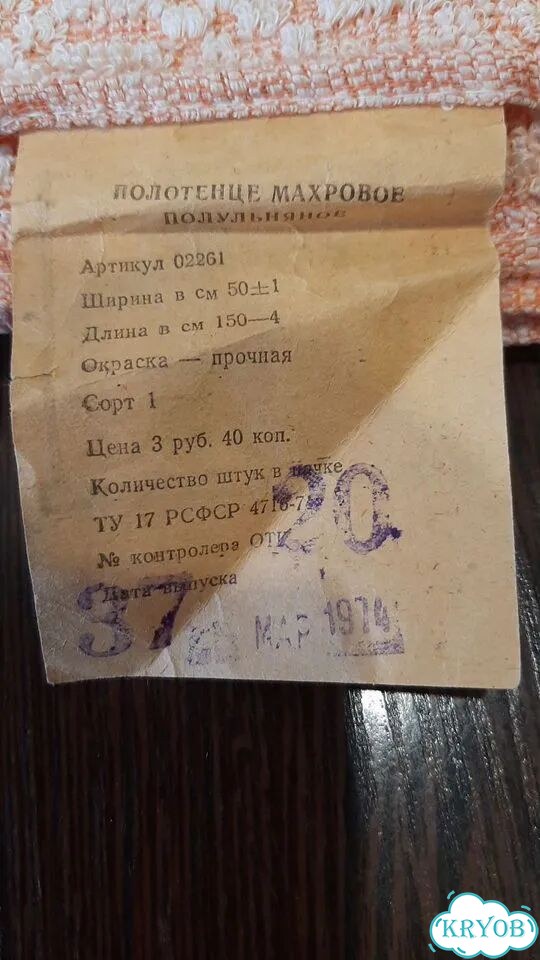 ПОЛОТЕНЦЕ МАХРОВОЕ
ПОЛУЛЬНЯНОЕ
Артикул 02261
Ширина в см 50±1
Длина в см 150—4
Окраска — прочная
Сорт 1
Цена 3 руб. 40 коп.
Количество штук в пачке
20
ТУ 17 РСФСР
№ контролера ОТК
Дата выпуска
37
МАР 1974
KRYOB